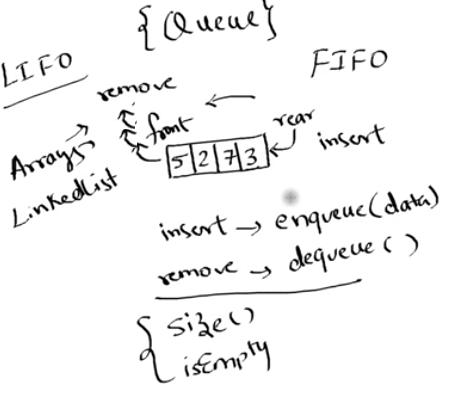 {Queue}
LIFO
FIFO
remove
front
rear
insert
Arrays
LinkedList
5 2 7 3
insert → enqueue(data)
remove → dequeue()
size()
isEmpty